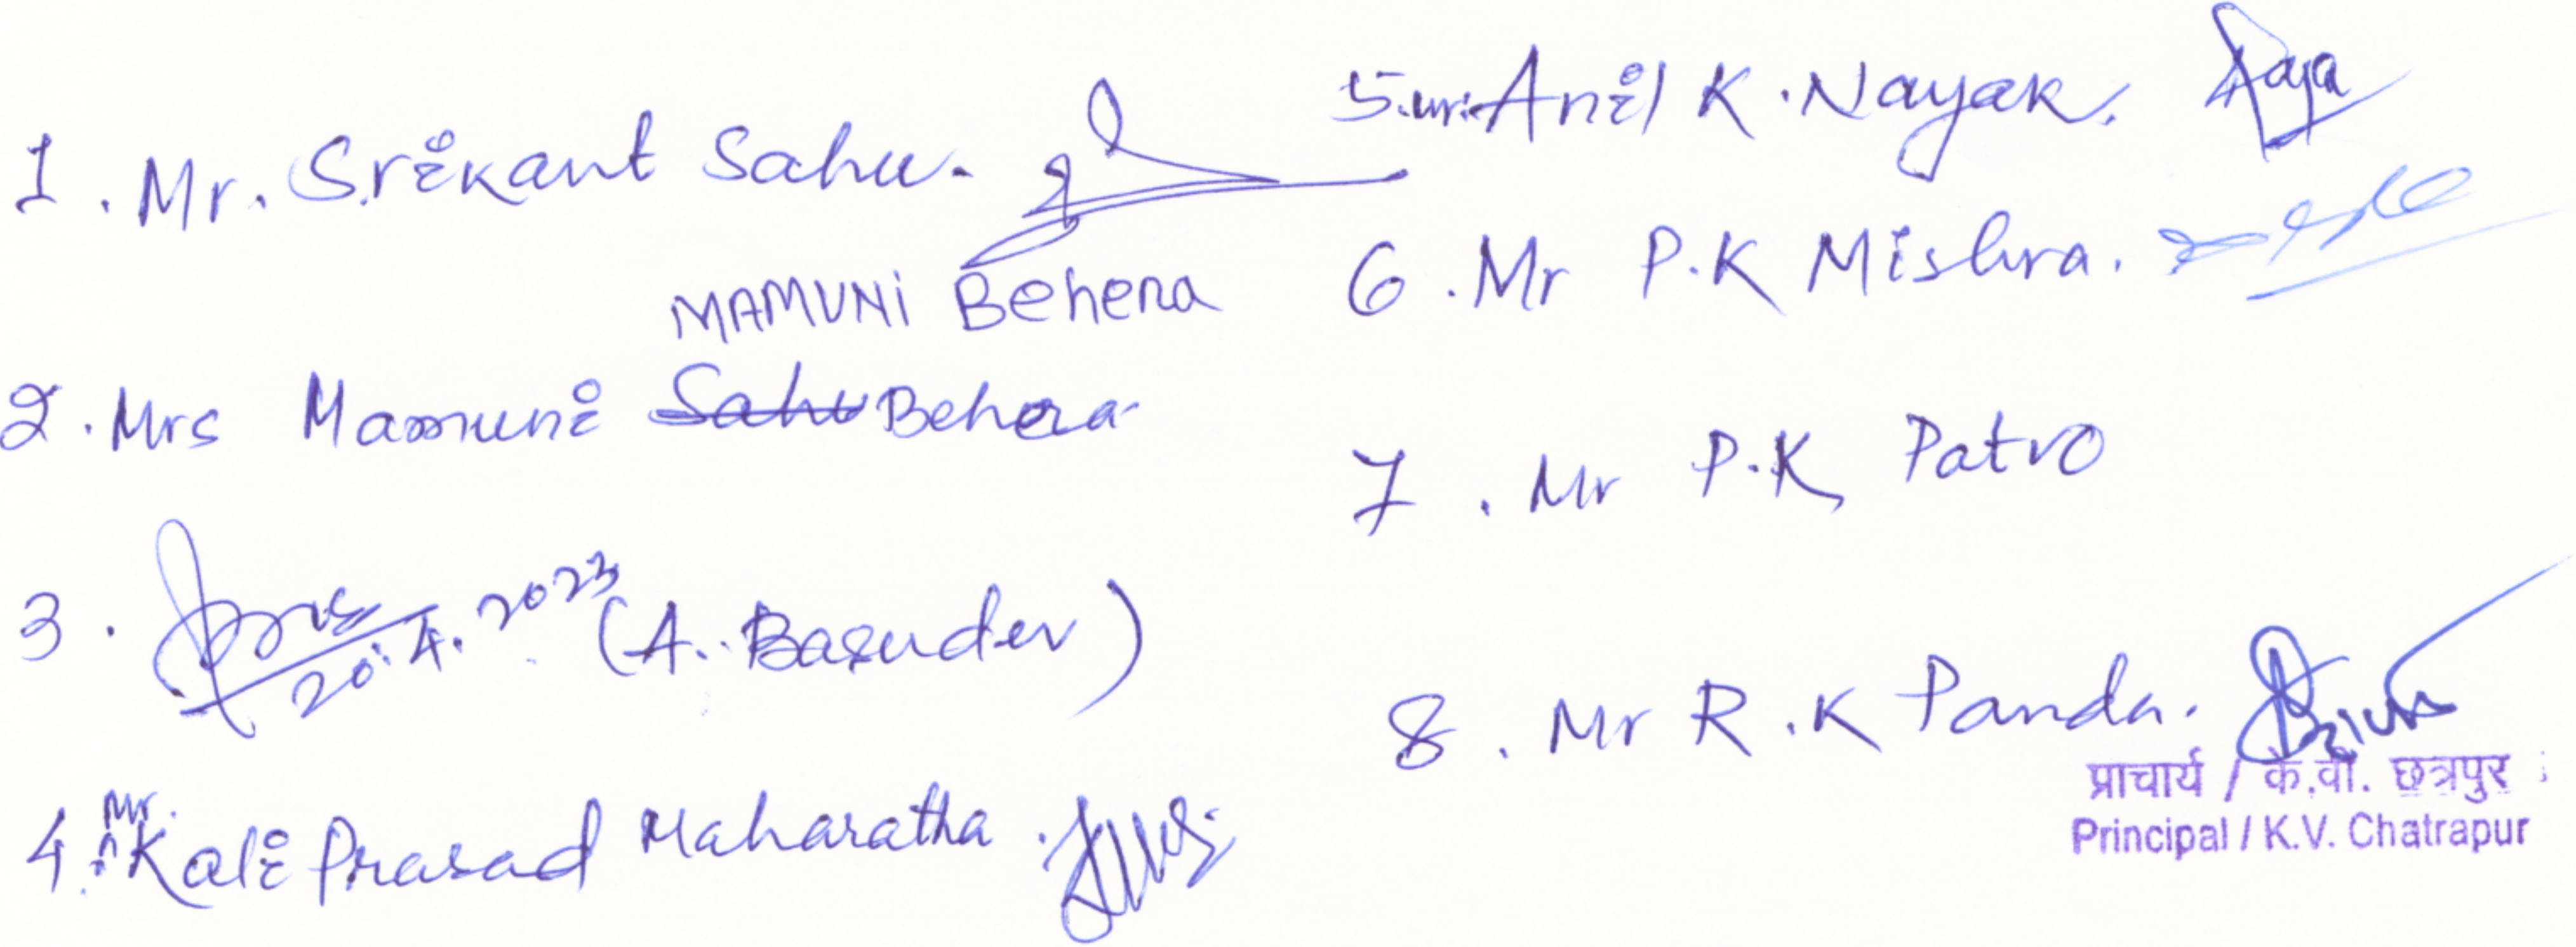 1. Mr. Srikant Sahu.
MAMUNi Behera
2. Mrs Mamuni Sahu Behera
3. 20.4.2023 (A. Basudev)
4. Mr. Kali Prasad Maharatha.
5. Mr. Anil K. Nayak.
6. Mr P.K Mishra.
7. Mr P.K Patro
8. Mr R.K Panda.
प्राचार्य / के.वी. छत्रपुर
Principal / K.V. Chatrapur